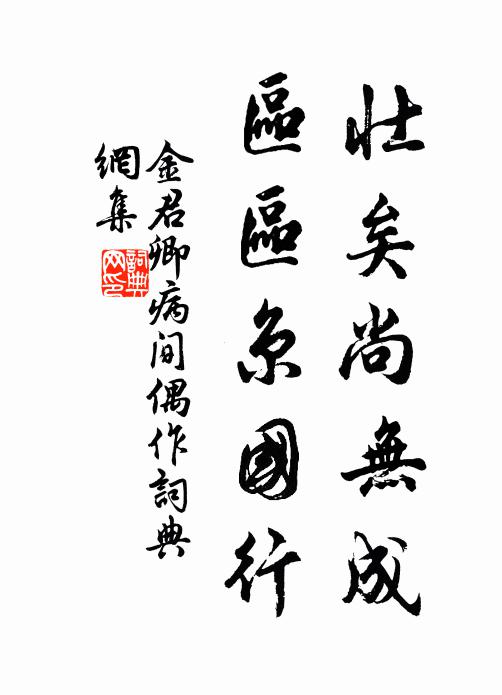 壯矣尚無成
區區京國行
金君卿病间偶作詞典
網集
詞典网印